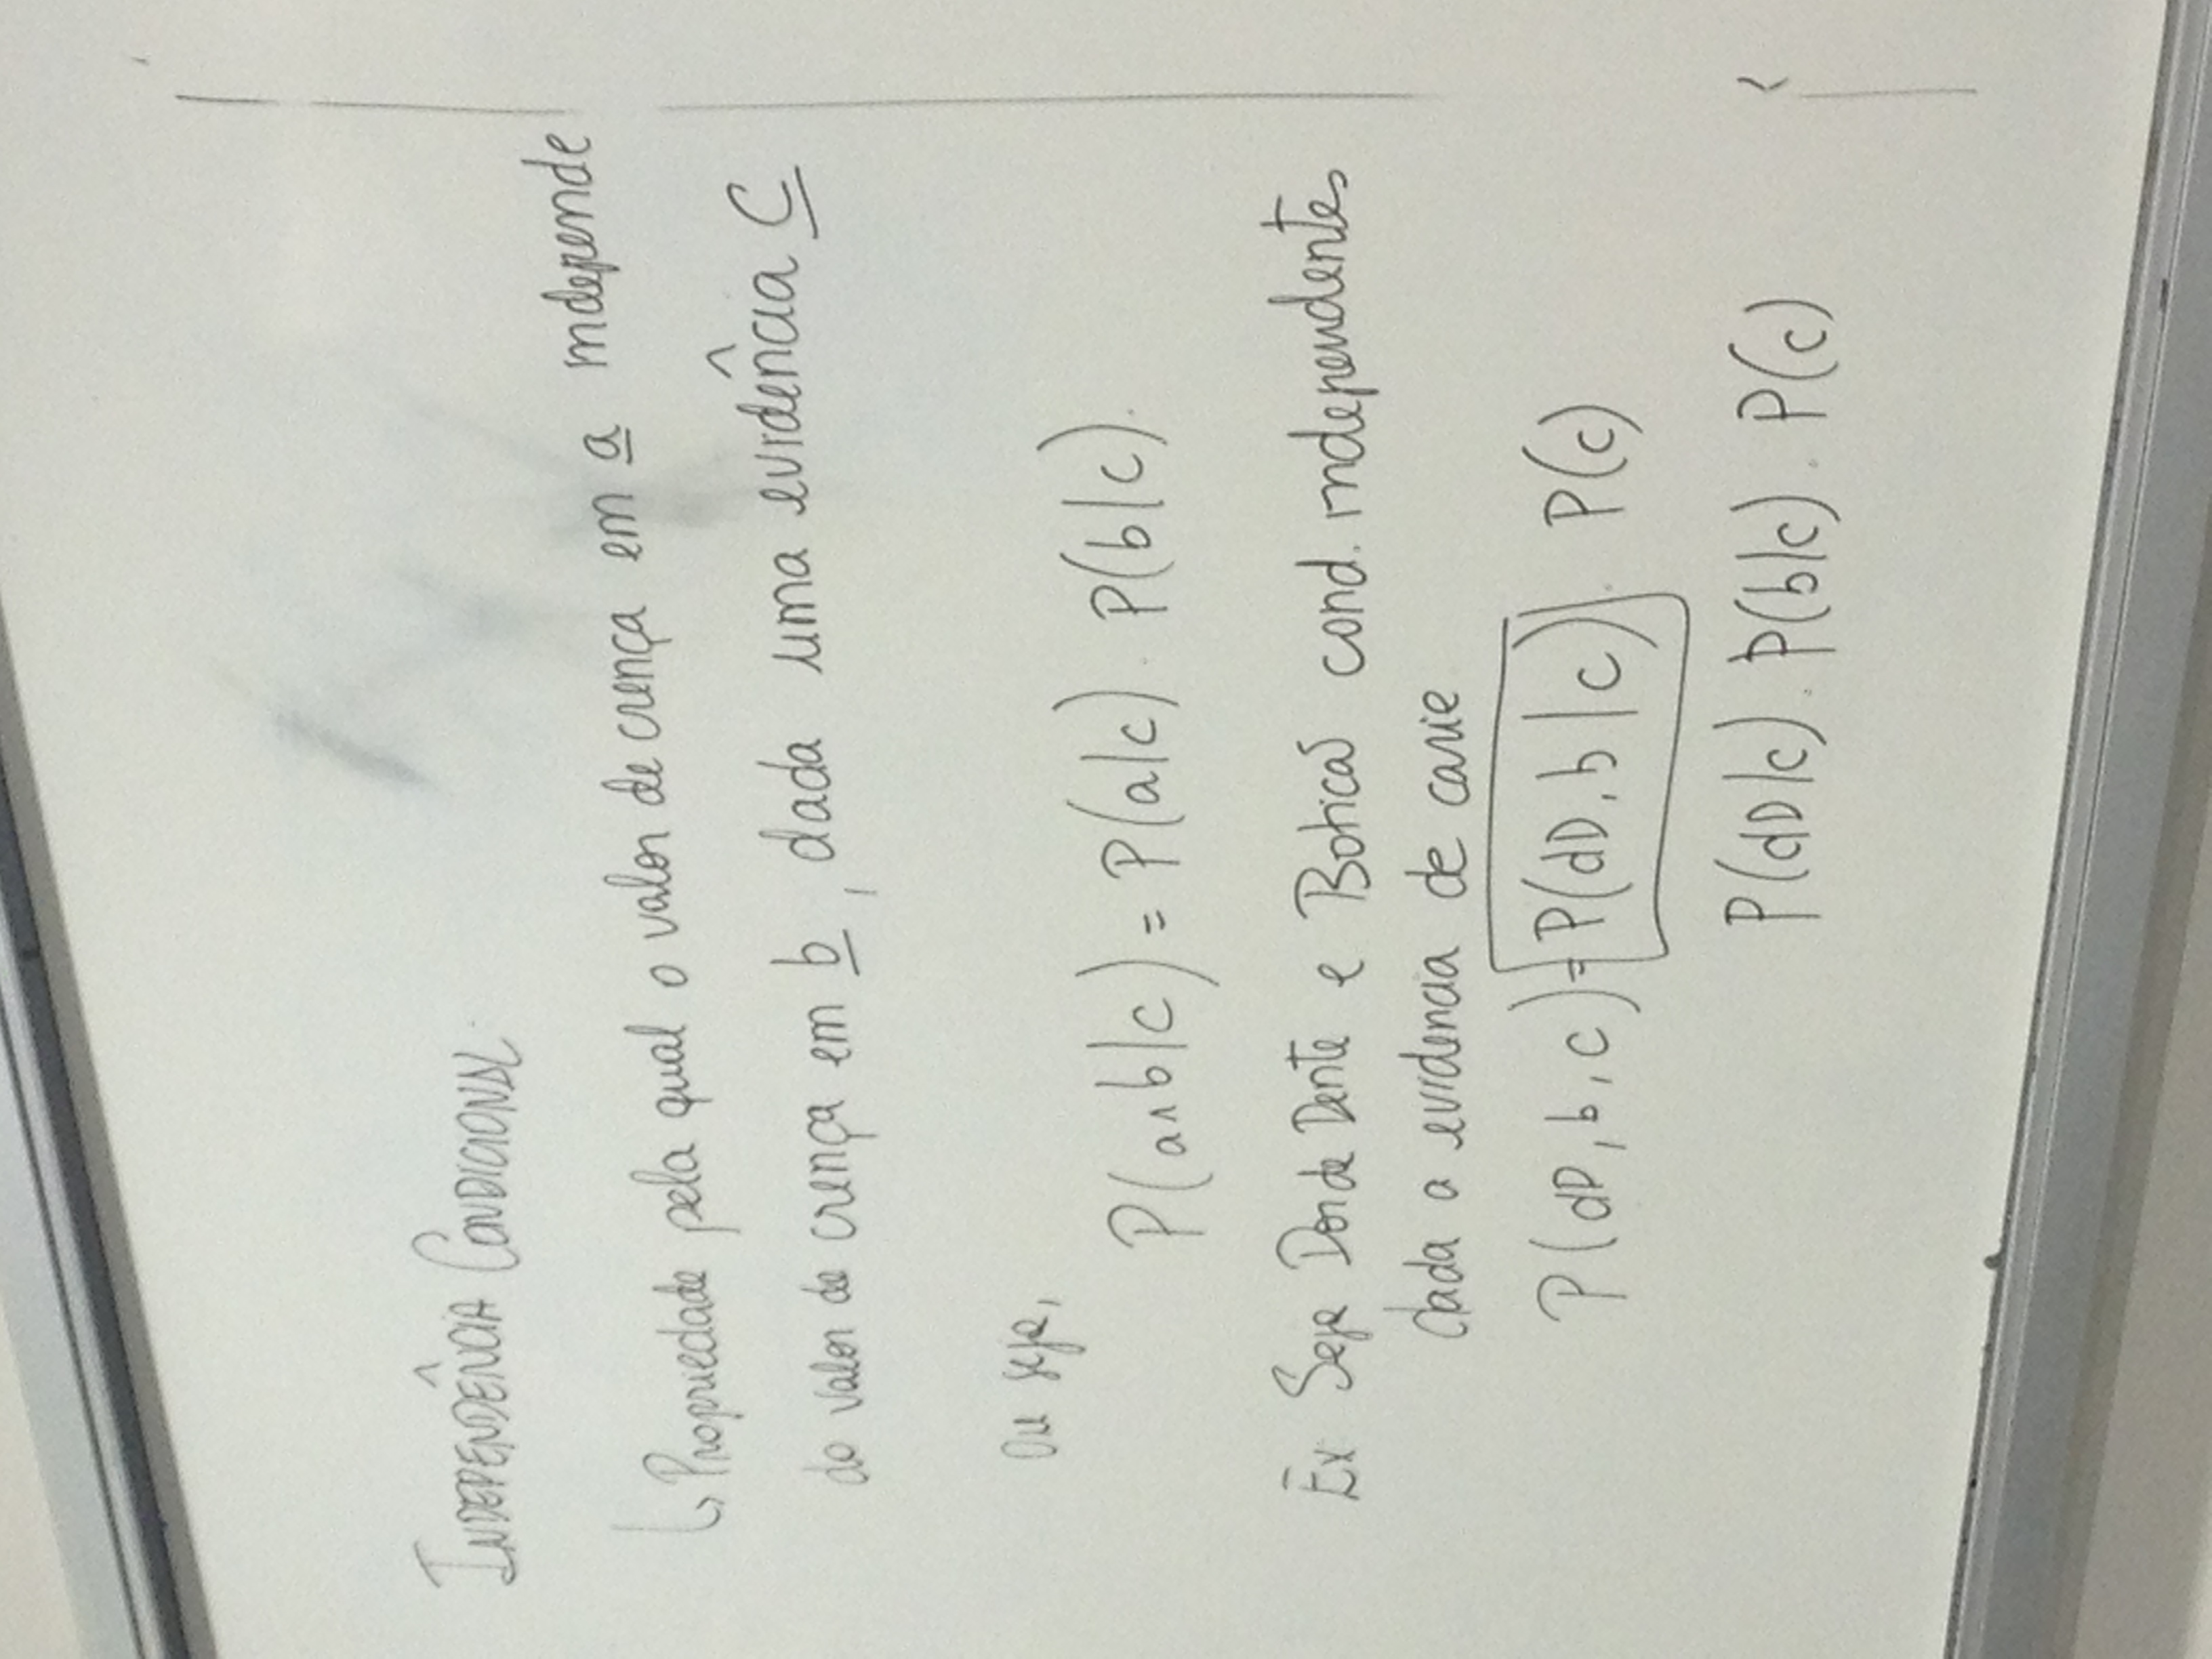 INDEPENDÊNCIA CONDICIONAL
↳ Propriedade pela qual o valor de crença em a independe
do valor de crença em b, dada uma evidência C
ou seja,
P(a∧b|c) = P(a|c) . P(b|c).
Ex Seja Dor de Dente e Boticas cond. independentes
dada a evidencia de carie
P(dD, b, c) = P(dD, b | c) . P(c)
P(dD|c) . P(b|c) . P(c)